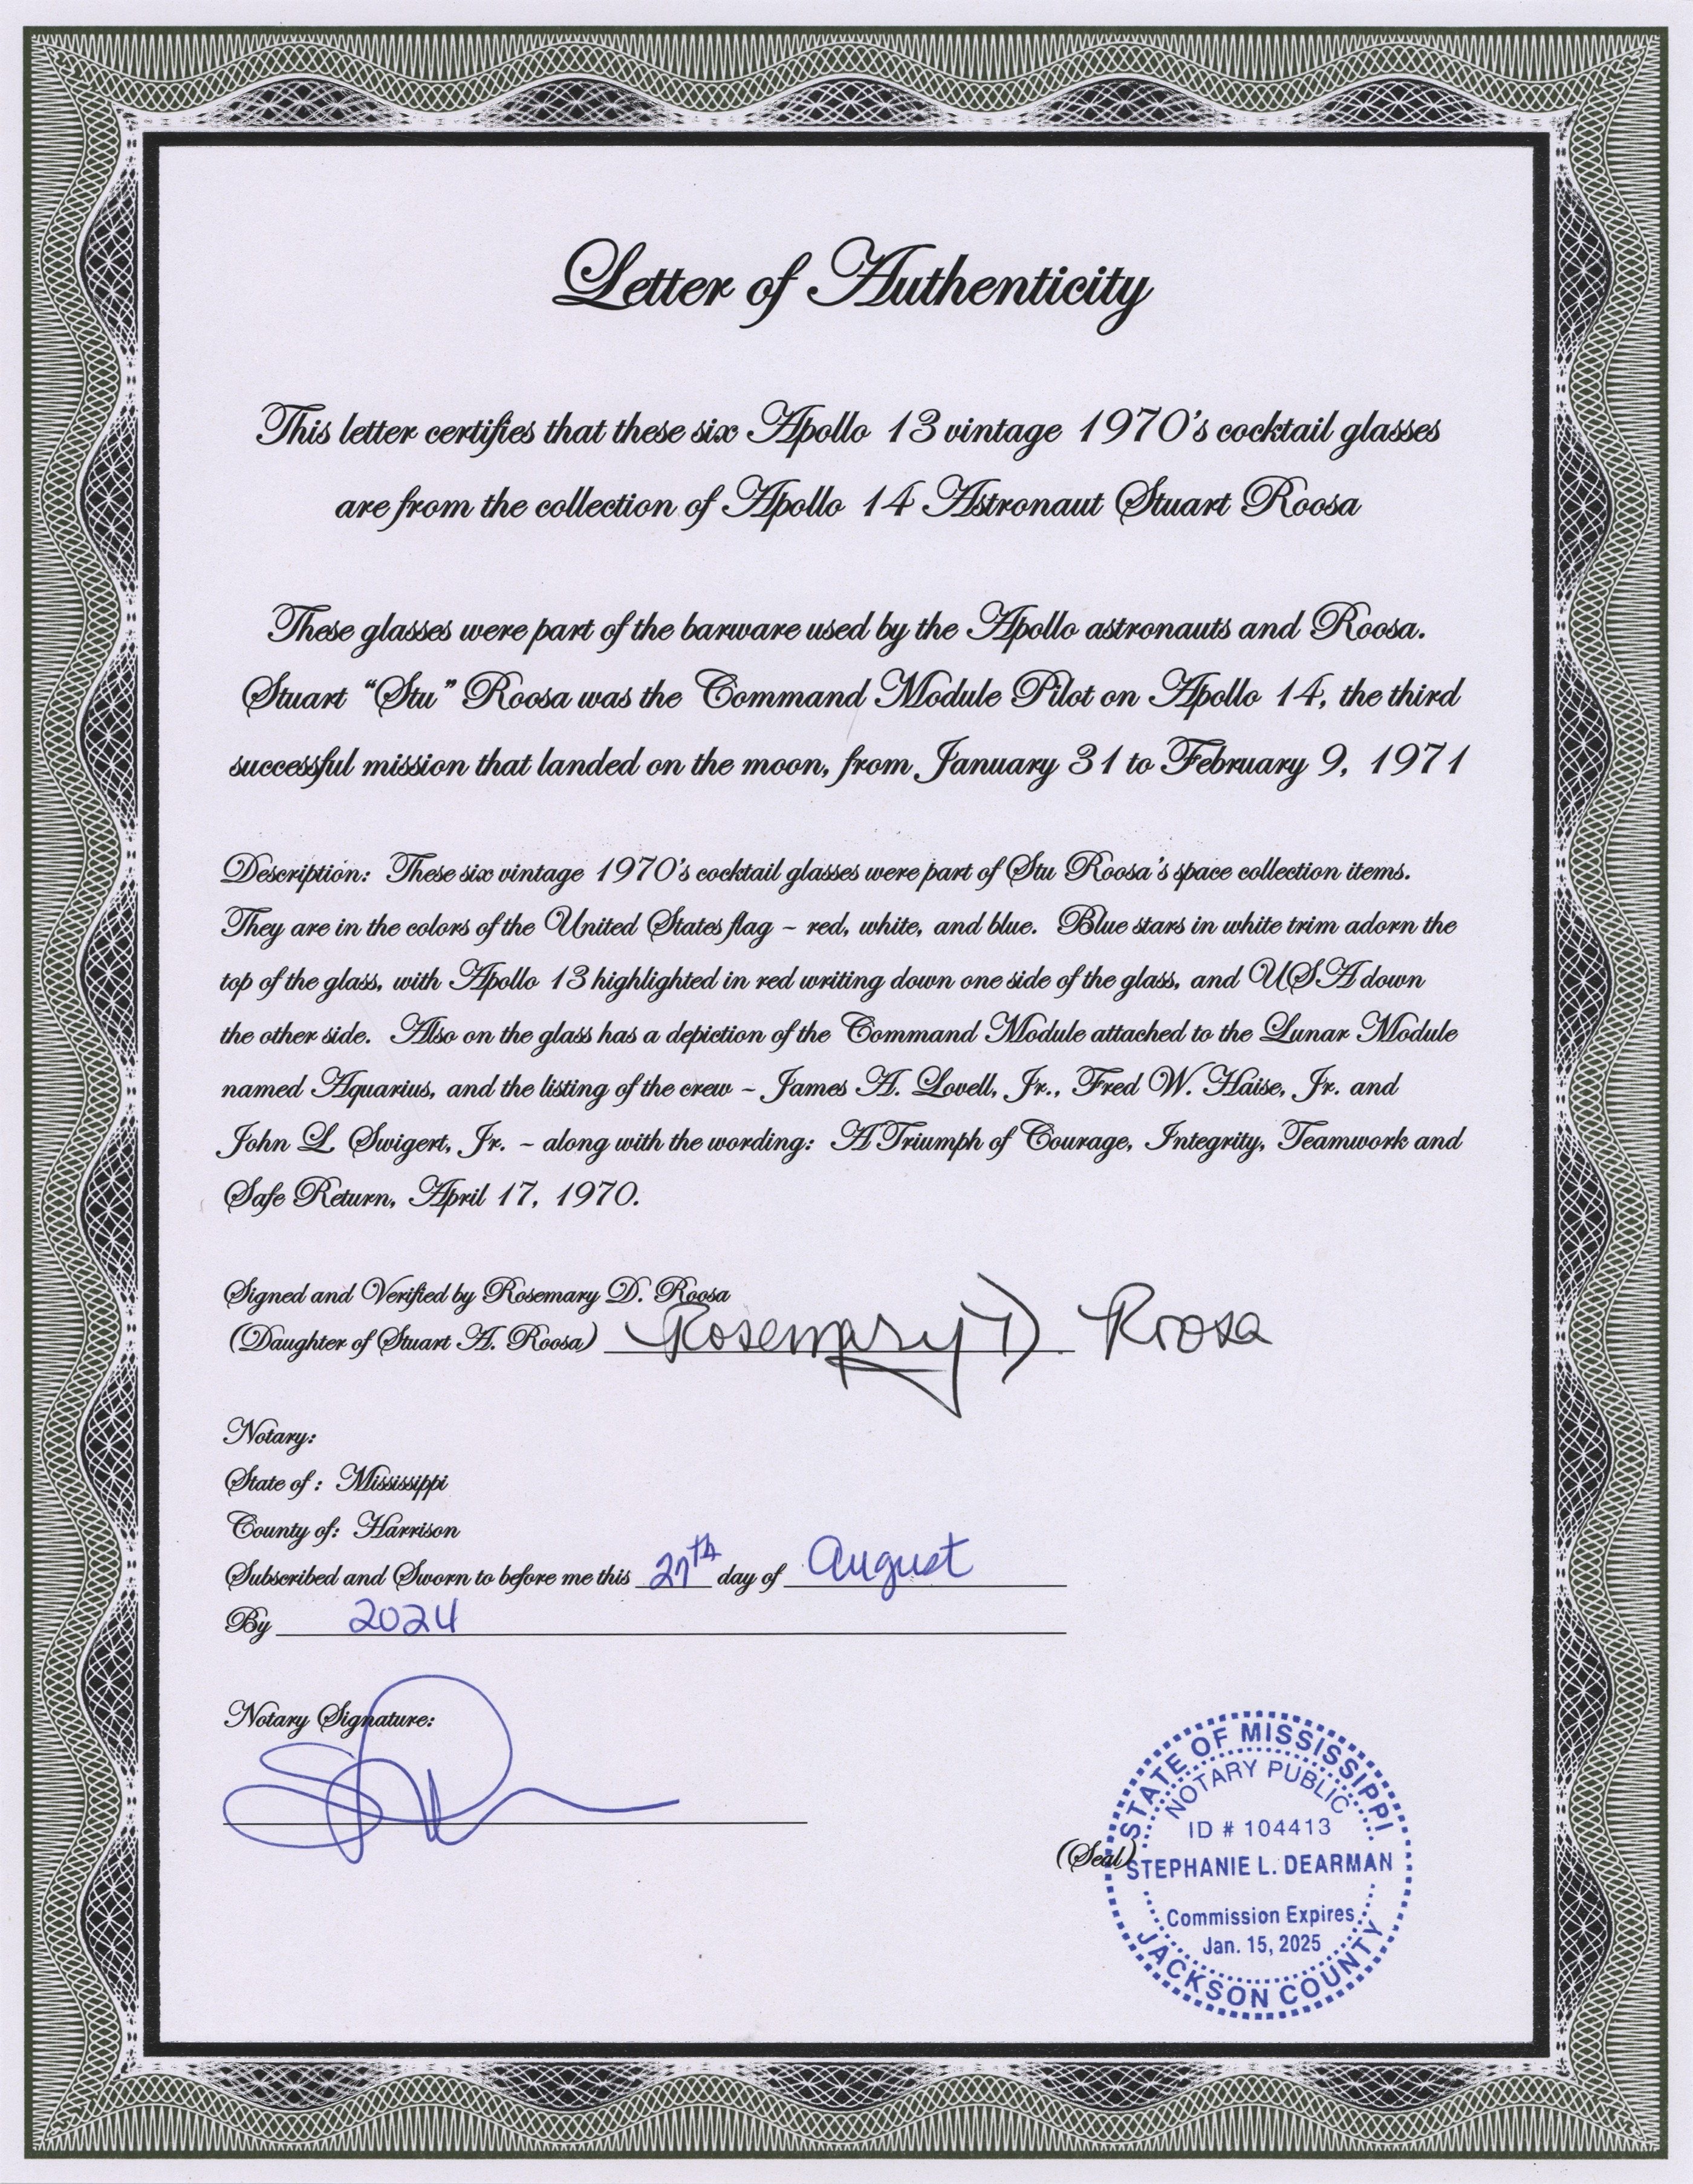 Letter of Authenticity
This letter certifies that these six Apollo 13 vintage 1970's cocktail glasses
are from the collection of Apollo 14 Astronaut Stuart Roosa
These glasses were part of the barware used by the Apollo astronauts and Roosa.
Stuart "Stu" Roosa was the Command Module Pilot on Apollo 14, the third
successful mission that landed on the moon, from January 31 to February 9, 1971
Description: These six vintage 1970's cocktail glasses were part of Stu Roosa's space collection items.
They are in the colors of the United States flag ~ red, white, and blue. Blue stars in white trim adorn the
top of the glass, with Apollo 13 highlighted in red writing down one side of the glass, and USA down
the other side. Also on the glass has a depiction of the Command Module attached to the Lunar Module
named Aquarius, and the listing of the crew ~ James A. Lovell, Jr., Fred W. Haise, Jr. and
John L. Swigert, Jr. ~ along with the wording: A Triumph of Courage, Integrity, Teamwork and
Safe Return, April 17, 1970.
Signed and Verified by Rosemary D. Roosa
(Daughter of Stuart A. Roosa) Rosemary D. Roosa
Notary:
State of : Mississippi
County of: Harrison
Subscribed and Sworn to before me this 27th day of August
By 2024
Notary Signature:
(Seal)
STATE OF MISSISSIPPI
NOTARY PUBLIC
ID # 104413
STEPHANIE L. DEARMAN
Commission Expires
Jan. 15, 2025
JACKSON COUNTY